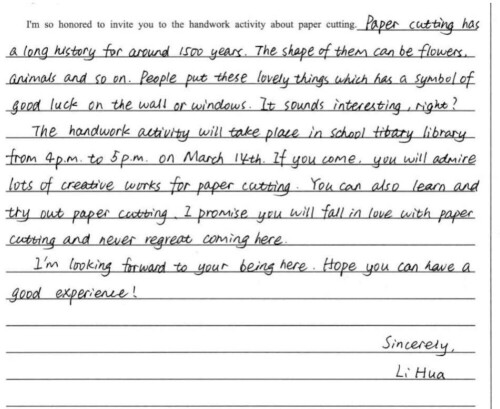 I'm so honored to invite you to the handwork activity about paper cutting. Paper cutting has
a long history for around 1500 years. The shape of them can be flowers,
animals and so on. People put these lovely things which has a symbol of
good luck on the wall or windows. It sounds interesting, right?
The handwork activity will take place in school tibary library
from 4p.m. to 5p.m. on March 14th. If you come, you will admire
lots of creative works for paper cutting. You can also learn and
try out paper cutting. I promise you will fall in love with paper
cutting and never regreat coming here.
I'm looking forward to your being here. Hope you can have a
good experience!
Sincerely,
Li Hua